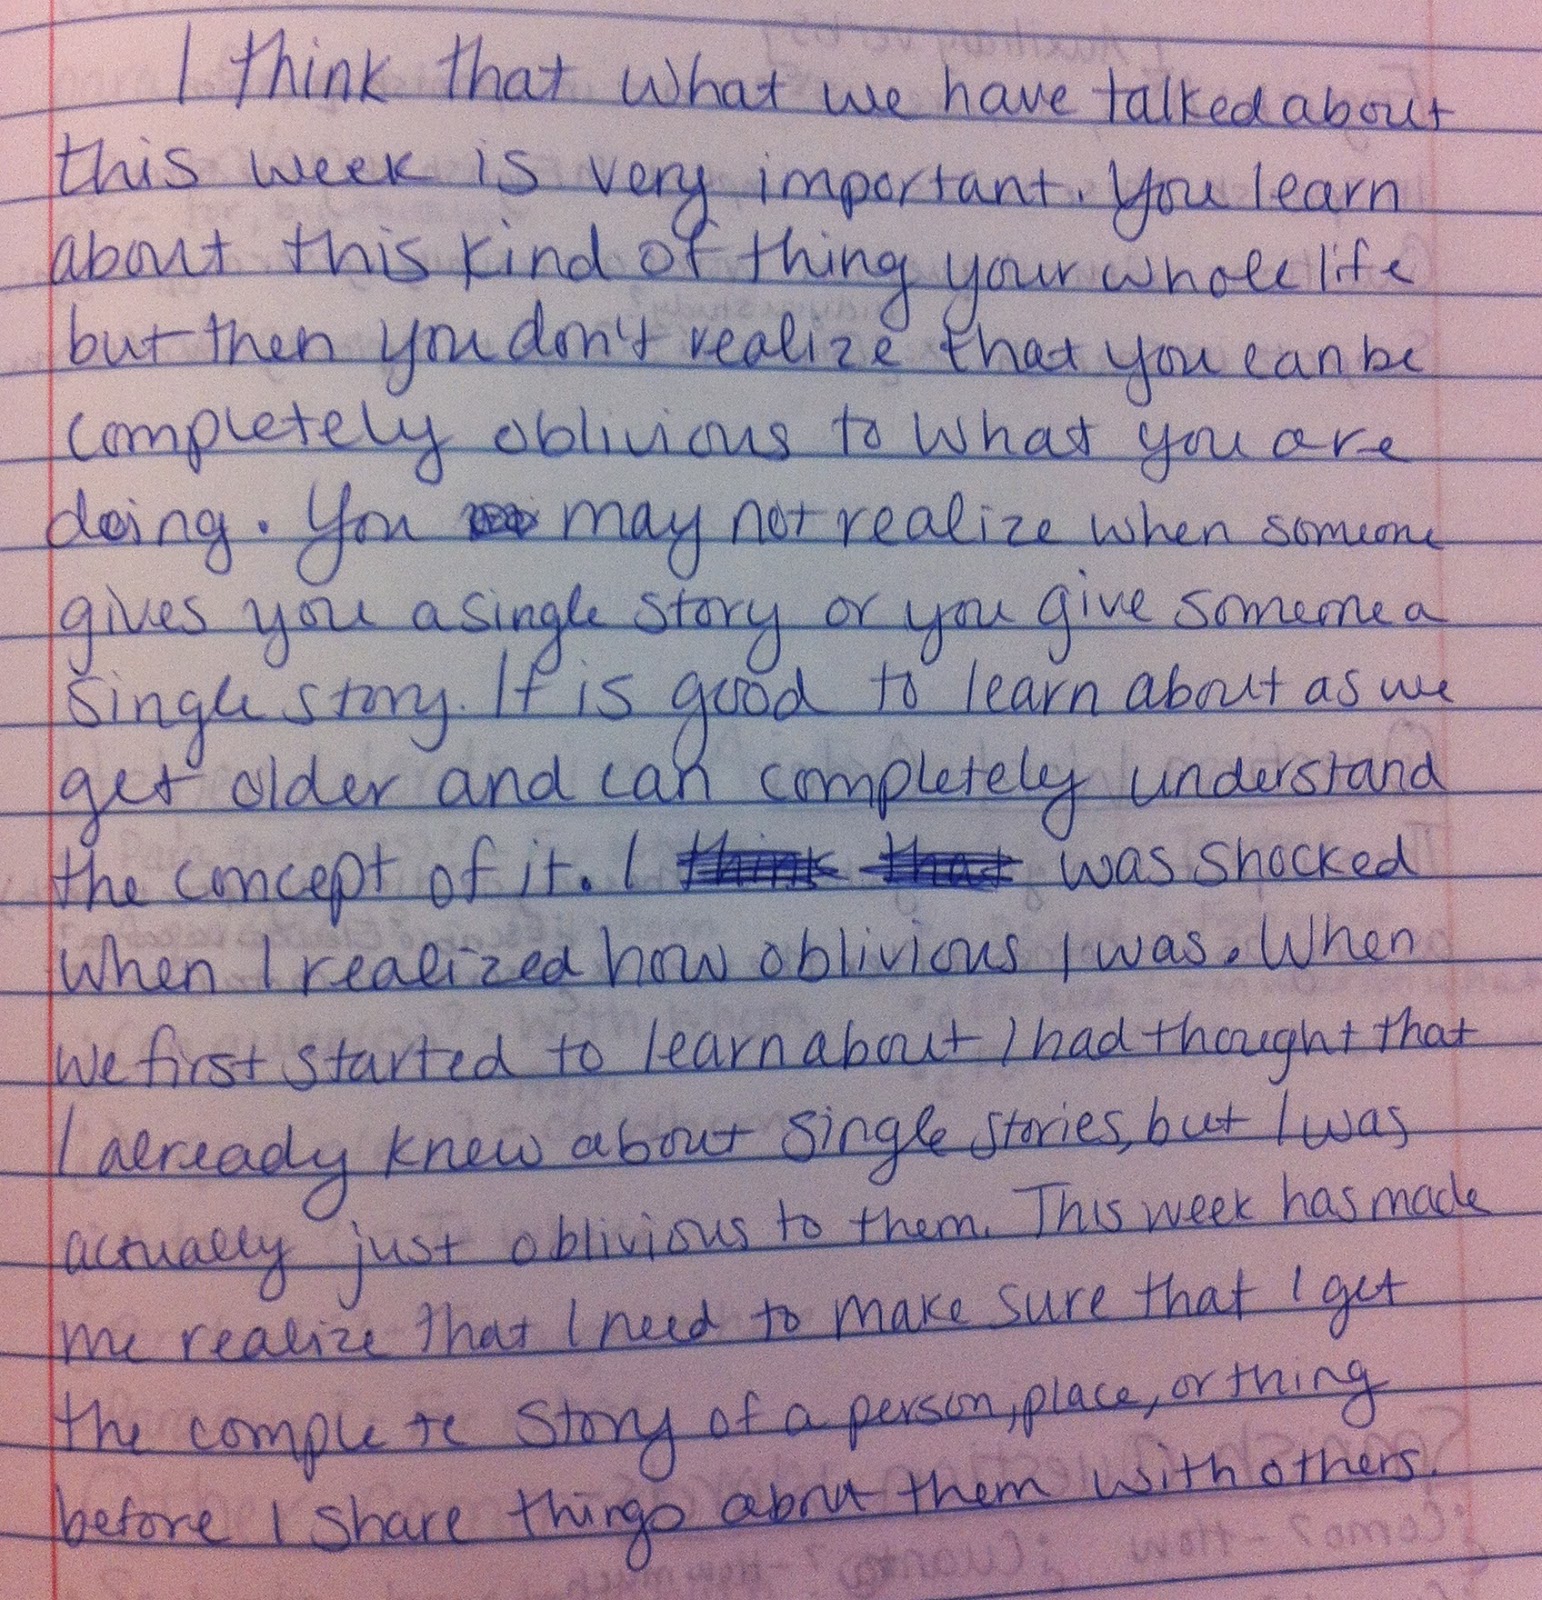 I think that what we have talked about
this week is very important. You learn
about this kind of thing your whole life
but then you don't realize that you can be
completely oblivious to what you are
doing. You may not realize when someone
gives you a single story or you give someone a
single story. It is good to learn about as we
get older and can completely understand
the concept of it. I think that was shocked
when I realized how oblivious I was. When
we first started to learn about I had thought that
I already knew about single stories, but I was
actually just oblivious to them. This week has made
me realize that I need to make sure that I get
the complete story of a person, place, or thing
before I share things about them with others.
¿Como? - How ¿Cuanto? - How much